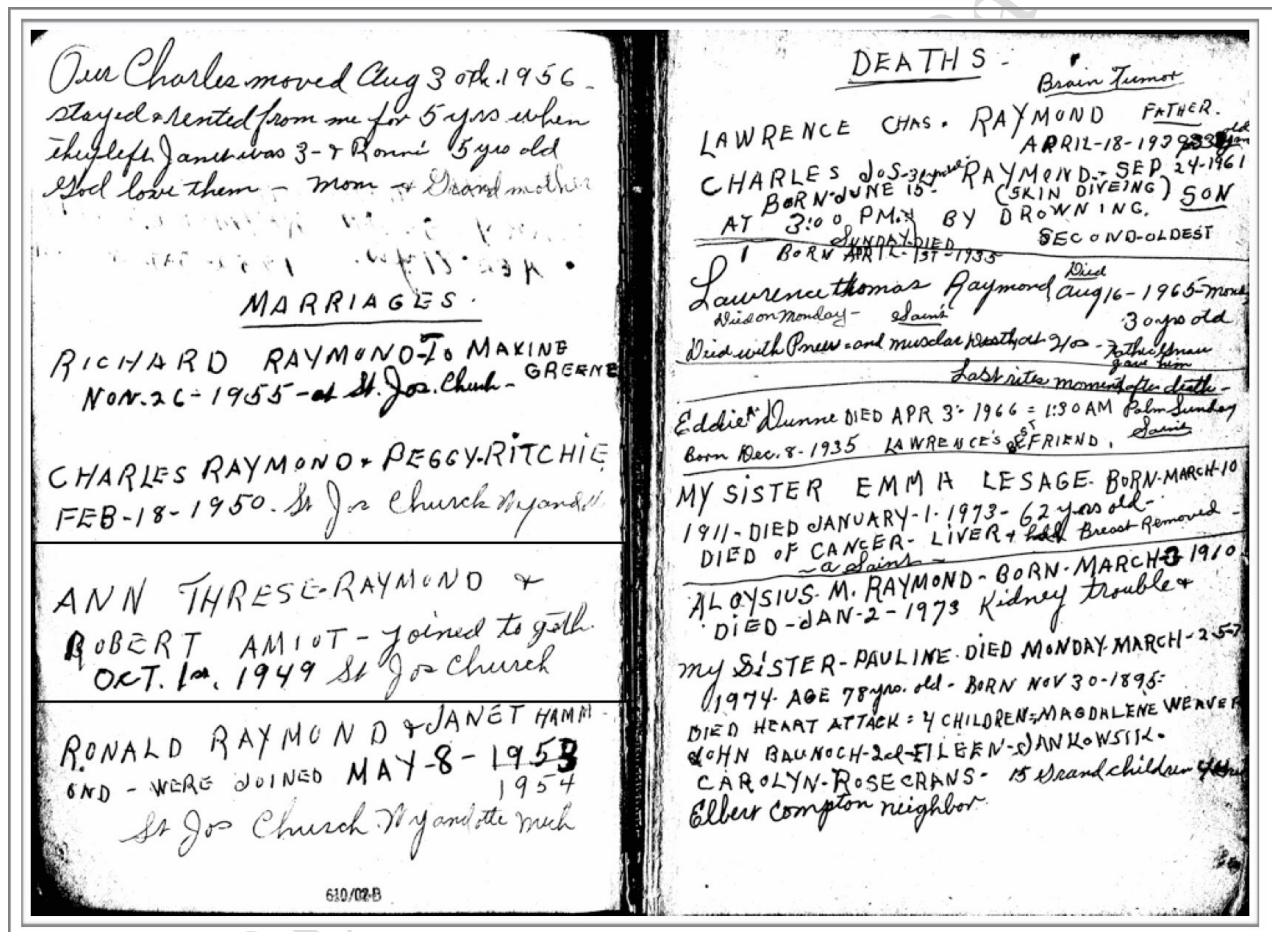 Our Charles moved Aug 30th. 1956 -
stayed & rented from me for 5 yrs when
they left Janet was 3 - & Ronni 5 yrs old
God love them - Mom & Grandmother
MARRIAGES.
RICHARD RAYMOND-To MAXINE
GREENE
NOV. 26 - 1955 - at St. Jos. Church -
CHARLES RAYMOND & PEGGY-RITCHIE
FEB-18-1950. St Jos Church Wyandotte
ANN THRESE-RAYMOND &
ROBERT AMIOT - joined to geth.
OCT. 1st, 1949 St Jos Church
RONALD RAYMOND & JANET HAMM-
OND - WERE JOINED MAY-8-1953
1954
St Jos Church Wyandotte Mich
610/02-B
DEATHS -
Brain Tumor
LAWRENCE CHAS. RAYMOND FATHER.
APRIL-18-193
old
CHARLES JOS- RAYMOND.- SEP. 24-1961
BORN-JUNE 15- (SKIN DIVEING) SON
AT 3:00 PM. BY DROWNING.
SUNDAY-DIED SECOND-OLDEST
BORN APRIL-1ST-1935
Lawrence thomas Raymond Died Aug 16-1965-
Died on Monday - Saint 30 yrs old
Died with and muscular - Father
gave him
Last rites moments after death -
Eddie Dunne DIED APR 3- 1966 = 1:30 AM Palm Sunday
Born Dec. 8-1935 LAWRENCE'S BEST FRIEND. Saint
MY SISTER EMMA LESAGE- BORN-MARCH-10
1911-DIED JANUARY-1-1973- 62 yrs old-
DIED OF CANCER- LIVER & Breast Removed -
- a Saint -
ALOYSIUS. M. RAYMOND- BORN-MARCH-3 1910
DIED-JAN-2-1973 Kidney trouble &
my SISTER-PAULINE. DIED MONDAY-MARCH-25-
1974- AGE 78 yrs. old - BORN NOV 30-1895-
DIED HEART ATTACK = 4 CHILDREN=MAGDALENE WEAVER
JOHN BAUNOCH-2d-EILEEN-JANKOWSIK.
CAROLYN-ROSECRANS- 15 Grand children
Elbert Compton neighbor.